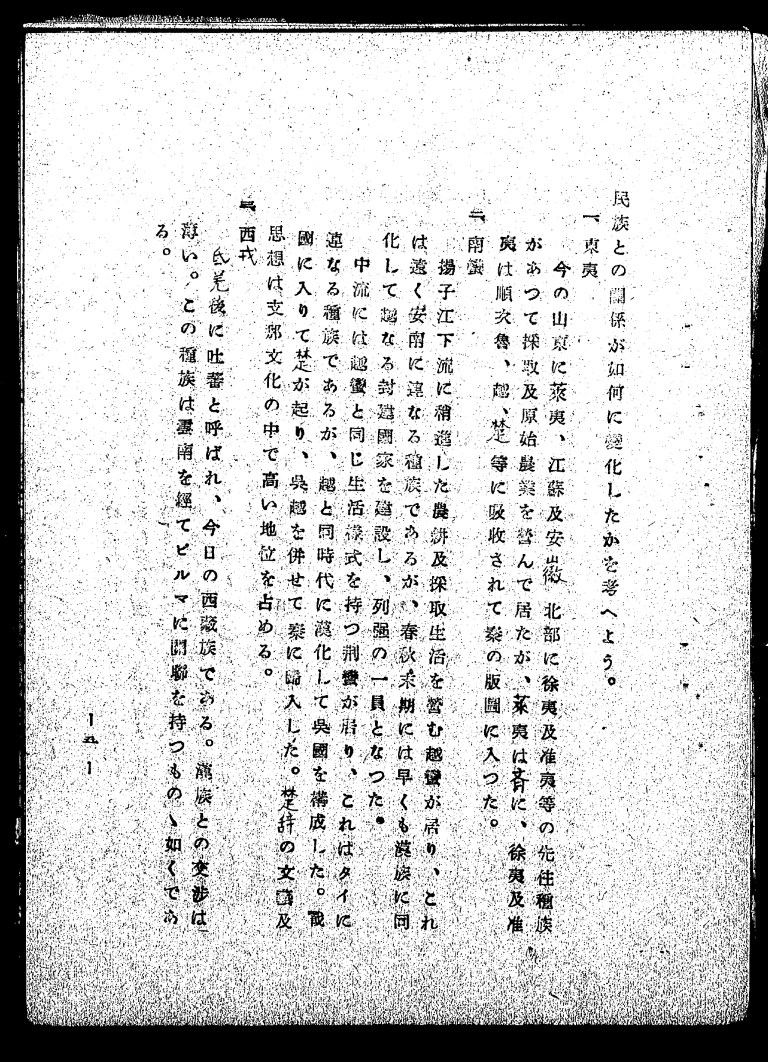 民族との關係が如何に變化したかを考へよう。
一、東夷
今の山東に萊夷、江蘇及安徽北部に徐夷及淮夷等の先住種族
があつて採取及原始農業を營んで居たが、萊夷は齊に、徐夷及淮
夷は順次魯、越、楚等に吸收されて秦の版圖に入つた。
二、南蠻
揚子江下流に稍進した農耕及採取生活を營む越蠻が居り、これ
は遠く安南に連なる種族であるが、春秋末期には早くも漢族に同
化して越なる封建國家を建設し、列强の一員となつた。
中流には越蠻と同じ生活樣式を持つ荆蠻が居り、これはタイに
連なる種族であるが、越と同時代に漢化して吳國を構成した。戰
國に入りて楚が起り、吳越を併せて秦に歸入した。楚辞の文藝及
思想は支那文化の中で高い地位を占める。
三、西戎
氐羌後に吐蕃と呼ばれ、今日の西藏族である。漢族との交渉は
薄い。この種族は雲南を經てビルマに關聯を持つものゝ如くであ
る。
―五―